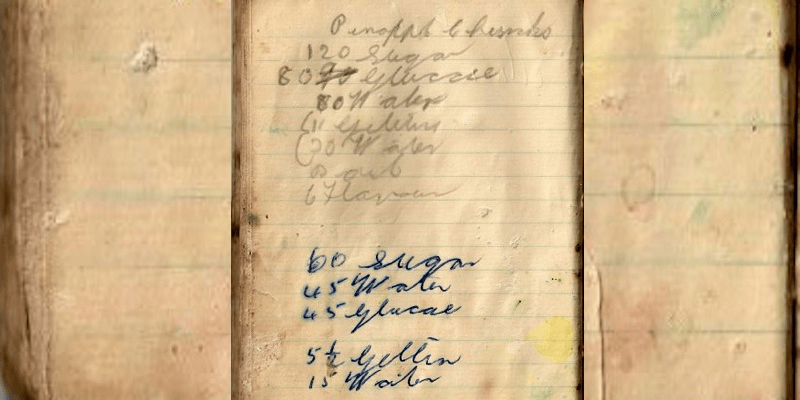 Pinappl Chunks
120 Sugar
80 Glucose
80 Water
(11 Gelletin
(20 Water
8 acid
6 Flavour
60 Sugar
45 Water
45 Glucae
5½ Gelltin
15 Water